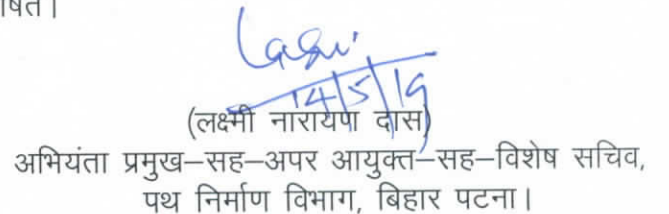 षित।
14/5/19
(लक्ष्मी नारायण दास)
अभियंता प्रमुख–सह–अपर आयुक्त–सह–विशेष सचिव,
पथ निर्माण विभाग, बिहार पटना।